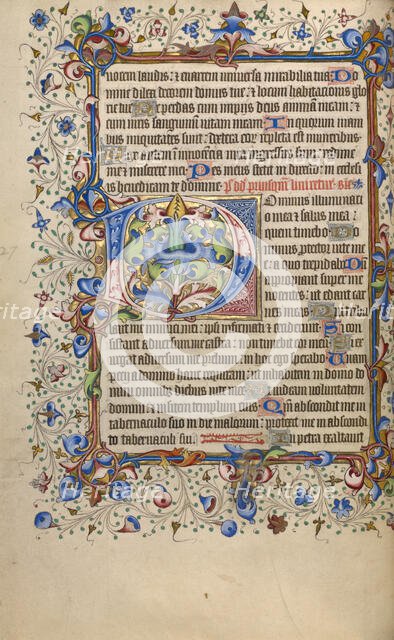 vocem laudis: et enarrem universa mirabilia tua Do
mine dilexi decorem domus tue: et locum habitationis glo
rie tue Ne perdas cum impijs deus animam meam: et
cum viris sanguinum vitam meam In quorum mani
bus iniquitates sunt: dextera eorum repleta est muneribus
Ego autem in innocencia mea ingressus sum redime
me et miserere mei Pes meus stetit in directo: in ecclesi
is benedicam te domine
Dominus illuminatio
mea et salus mea:
quem timebo Do
minus protector vite me
e: a quo trepidabo Dum
appropiant super me
nocentes: ut edant car
nes meas
lant me inimici mei: ipsi infirmati et ceciderunt Si
sistant adversum me castra: non timebit cor meum Si ex
urgat adversum me prelium: in hoc ego sperabo Unam
petij a domino hanc requiram: ut inhabitem in domo do
mini omnibus diebus vite mee Ut videam voluntatem
domini: et visitem templum eius Quoniam abscondit me in
tabernaculo suo: in die malorum: protexit me in abscondi
to tabernaculi sui In petra exaltavit
Heritage
Heritage
Heritage
Heritage
Heritage
Heritage